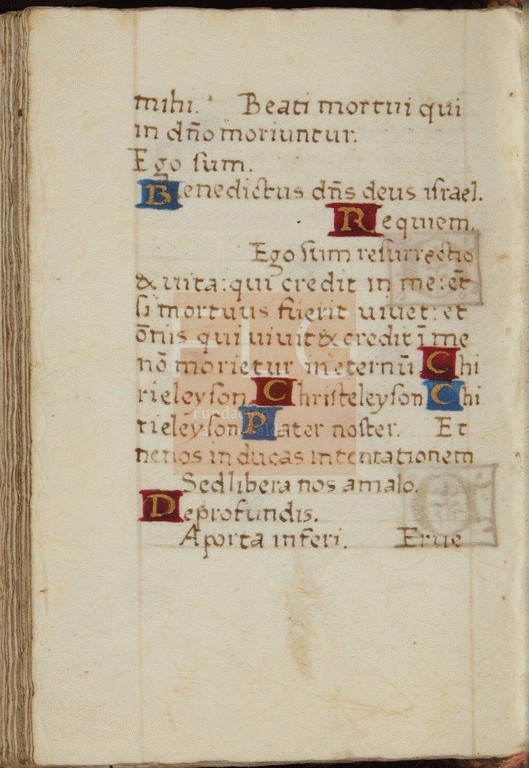 mihi. Beati mortui qui
in dño moriuntur.
Ego sum.
Benedictus dñs deus israel.
Requiem.
Ego sum resurrectio
& vita: qui credit in me: et̃
si mortuus fuerit vivet: et
õnis qui vivit & credit ĩ me
nõ morietur in eternũ. Chi
rieleyson. Christeleyson. Chi
rieleyson. Pater noster. Et
ne nos inducas in tentationem
Sed libera nos a malo.
De profundis.
A porta inferi. Erue